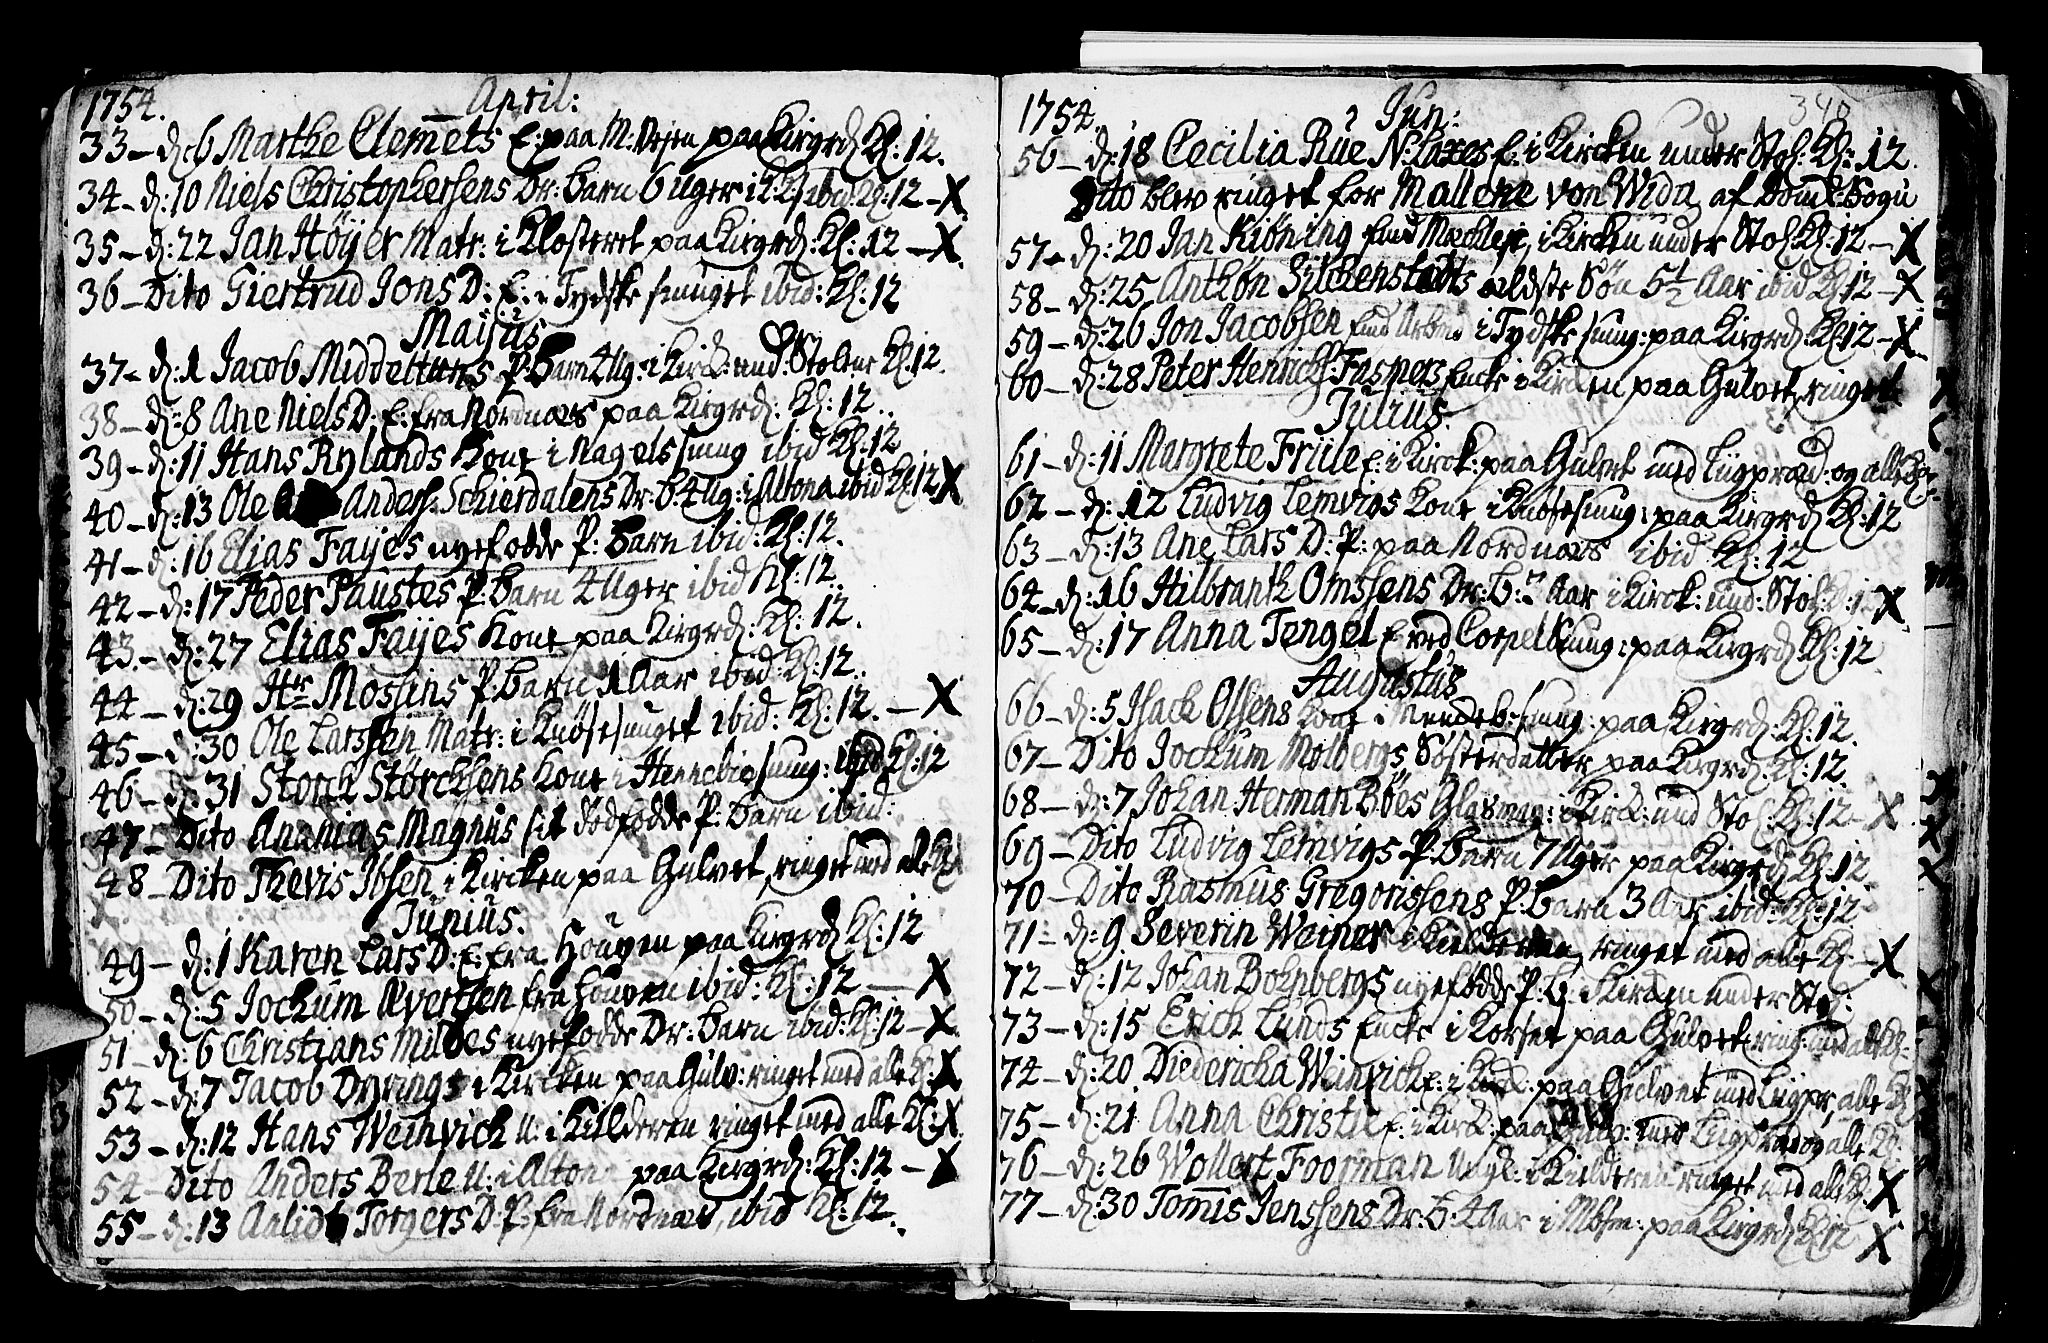 1754. April:
33 – d: 6 Marthe Clemets E: paa M: paa Kirgrd Kl: 12.
34 – d: 10 Niels Christophersens Dr: Barn 6 Uger ibid Kl: 12 – X
35 – d: 22 Jan Høyer Matr: i Klosteret paa Kirgrd: Kl: 12 – X.
36 – Dito Giertrud Jons D: E: i Tydske smuget ibid: Kl: 12
Maijus
37 – d: 1 Jacob Middeltuns P: Barn 4 Ug: i Kirck: und: Stolene Kl: 12.
38 – d: 8 Ane Niels D: E: fra Nordnæs paa Kirgrd: Kl: 12.
39 – d: 11 Hans Rylands Kone i Nagelssmug ibid Kl: 12
40 – d: 13 Ole Anders: Schierdalens Dr: B 4 Ug: i Altona ibid Kl: 12 X
41 – d: 16 Elias Fayes nyefødde P: Barn ibid: Kl: 12.
42 – d: 17 Peder Paustes P: Barn 4 Uger ibid Kl: 12.
43 – d: 27 Elias Fayes Kone paa Kirgrd: Kl: 12.
44 – d: 29 Hr Mossins P: Barn 1 Aar ibid: Kl: 12.
45 – d: 30 Ole Larssen Matr: i Knøsesmuget ibid: Kl: 12. – X
46 – d: 31 Storck Størcksens Kone i smug: ibid Kl: 12
47 – Dito Ananias Magnus sit dødfødde P: Barn ibid:
48 – Dito Thevis Ibsen i Kircken paa Gulvet, ringet med alle Kl:
Junius.
49 – d: 1 Karen Lars D: E: fra Hougen paa Kirgrd Kl: 12
50 – d: 5 Jochum Avertsen fra Houven ibid: Kl: 12 – X
51 – d: 6 Christians Milbes nyefødde Dr: Barn ibid: Kl: 12 – X
52 – d: 7 Jacob Dyrings i Kircken paa Gulv: ringet med alle Kl: X
53 – d: 12 Hans Weinvich U: i Kielderen ringet med alle Kl: X
54 – Dito Anders Berle U: i Altona paa Kirgrd: Kl: 12 – X
55 – d: 13 Aalid Torgers D: P: fra Nordnæs, ibid Kl: 12.
1754. Jun: 340
56 – d: 18 Cecilia Rüe N: E: i Kircken under Stol: Kl: 12.
Dito blev ringet for Mallene von Wida af Domk: Sogn
57 – d: 20 Jan Kiøning i Kircken under Stol Kl: 12 – X
58 – d: 25 Anthon Silckenstedts ældste Søn 5 1/2 Aar ibid Kl: 12 – X
59 – d: 26 Jon Jacobsen i Tydske smug: paa Kirgrd: Kl: 12 – X
60 – d: 28 Peter Henrich Fasmers Encke i Kircken paa Gulvet, ringet
Julius.
61 – d: 11 Margrete Friile E: i Kirck: paa Gulvet med Liigpræd: og alle Kl:
62 – d: 12 Ludvig Lemvigs Kone i Knøsesmug: paa Kirgrd Kl: 12
63 – d: 13 Ane Lars D: P: paa Nordnæs ibid: Kl: 12
64 – d: 16 Hilbranth Omssens Dr: B: Aar i Kirck: und: Stol: Kl: 12 X
65 – d: 17 Anna Tengel E: ved smug: paa Kirgrd Kl: 12
Augustus
66 – d: 5 Isack Olsens Kone i smug: paa Kirgrd: Kl: 12.
67 – Dito Jochum Molbergs Søsterdatter paa Kirgrd: Kl: 12.
68 – d: 7 Johan Herman Böes Glasmag: i Kirck: und Stol: Kl: 12 – X
69 – Dito Ludvig Lemvigs P: Barn 7 Uger paa Kirgrd Kl: 12.
70 – Dito Rasmus Gregorissens P: Barn 3 Aar ibid: Kl: 12
71 – d: 9 Severin Weiner i Kielderen, ringet med alle Kl: – X
72 – d: 12 Johan Bohnbergs nyefødde P: B: i Kircken under Stol:
73 – d: 15 Erich Lunds Encke i Korset paa Gulvet ring: med alle Kl:
74 – d: 20 Diedericha Weinvich E: i Kirck: paa Gulvet med Liigpr, alle Kl:
75 – d: 21 Anna Christie E: i Kirck: paa Gulv: med Liigpræd og alle Kl:
76 – d: 26 Wollert Foorman Ungk: i Kielderen ringet med alle Kl. X
77 – d: 30 Tomis Jenssens Dr: B: 4 Aar i paa Kirgrd: Kl 12 X